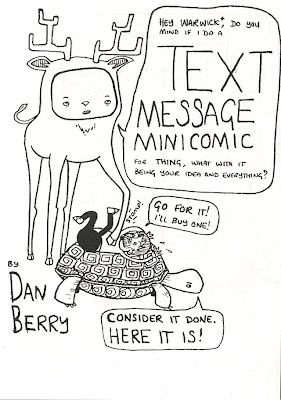 HEY WARWICK, DO YOU
MIND IF I DO A
TEXT
MESSAGE
MINICOMIC
FOR THING, WHAT WITH IT
BEING YOUR IDEA AND EVERYTHING?
GO FOR IT!
I'LL BUY ONE!
BY
DAN
BERRY
CONSIDER IT DONE.
HERE IT IS!